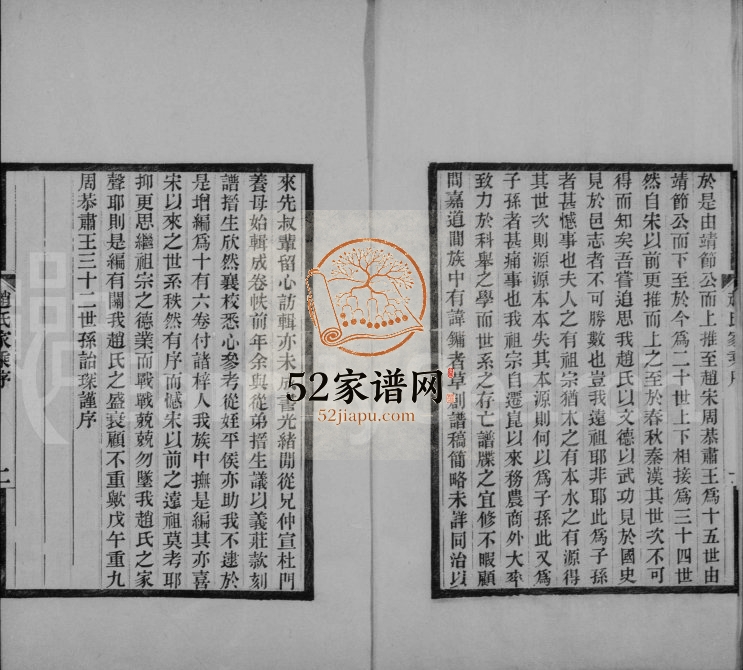 於是由靖節公而上推至趙宋周恭肅王為十五世由
靖節公而下至於今為二十世上下相接為三十四世
然自宋以前更推而上之至於春秋秦漢其世次不可
得而知矣吾嘗追思我趙氏以文德以武功見於國史
見於邑志者不可勝數也豈我遠祖耶非耶此為子孫
者甚憾事也夫人之有祖宗猶木之有本水之有源得
其世次則源源本本失其本源則何以為子孫此又為
子孫者甚痛事也我祖宗自遷崑以來務農商外大率
致力於科舉之學而世系之存亡譜牒之宜修不暇顧
問嘉道間族中有諱鏞者草創譜稿簡略未詳同治以
趙氏家乘序
來先叔輩留心訪輯亦未成書光緒閒從兄仲宣杜門
養母始輯成卷帙前年余與從弟搢生議以義莊款刻
譜搢生欣然襄校悉心參考從姪平侯亦助我不逮於
是增編為十有六卷付諸梓人我族中撫是編其亦喜
宋以來之世系秩然有序而憾宋以前之遠祖莫考耶
抑更思繼祖宗之德業而戰戰兢兢勿墜我趙氏之家
聲耶則是編有關我趙氏之盛衰顧不重歟戊午重九
周恭肅王三十二世孫詒琛謹序
趙氏家乘序
二
52家谱网
52jiapu.com